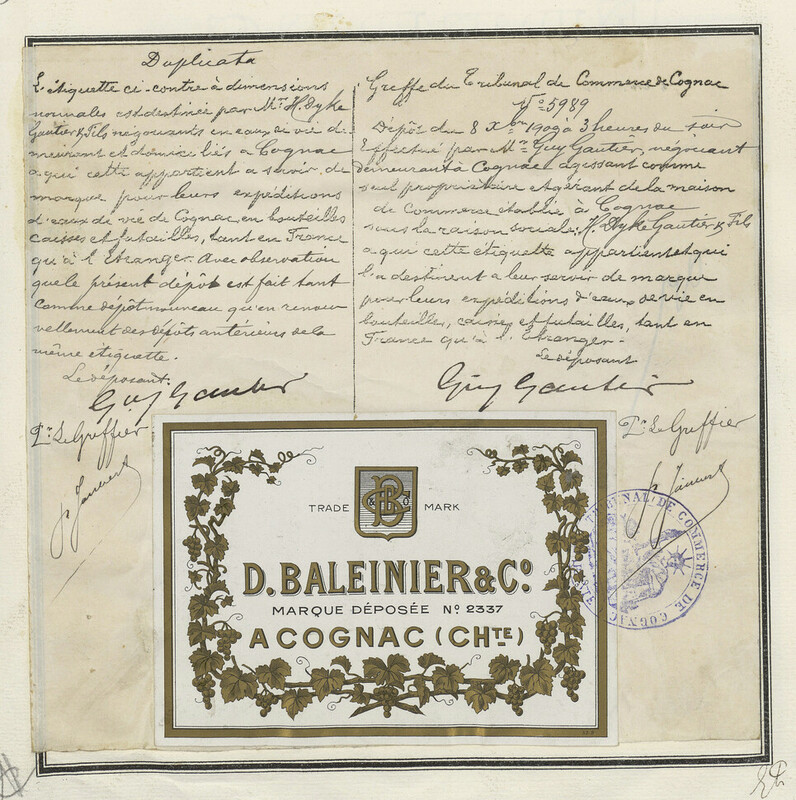 Duplicata
L'étiquette ci-contre à dimensions
normales est destinée par Mrs H. Dyke
Gautier & Fils négociants en eaux de vie de
meurant et domiciliés à Cognac
a qui cette appartient a servir de
marque pour leurs expéditions
d'eaux de vie de Cognac, en bouteilles
caisses et futailles, tant en France
qu'à l'Etranger. Avec observation
que le présent dépôt est fait tant
comme dépôt nouveau qu'en renou-
vellement des dépôts antérieurs de la
même étiquette.
Le déposant.
Guy Gautier
Pr Le Greffier
Greffe du Tribunal de Commerce de Cognac
No 5989
Dépôt du 8 Xbre 1909 à 3 heures du soir
Effectué par Mr Guy Gautier, négociant
demeurant à Cognac agissant comme
seul propriétaire et gérant de la maison
de Commerce établie à Cognac
sous la raison sociale: H. Dyke Gautier & Fils
a qui cette etiquette appartient et qui
l'a destinent a leur servir de marque
pour leurs expéditions d'eaux de vie en
bouteilles, caisses et futailles, tant en
France qu'à l'Etranger.
Le déposant
Guy Gautier
Pr Le Greffier
TRADE MARK
B & Co
D. BALEINIER & Co.
MARQUE DÉPOSÉE No 2337
A COGNAC (CHTE)
TRIBUNAL DE COMMERCE DE COGNAC